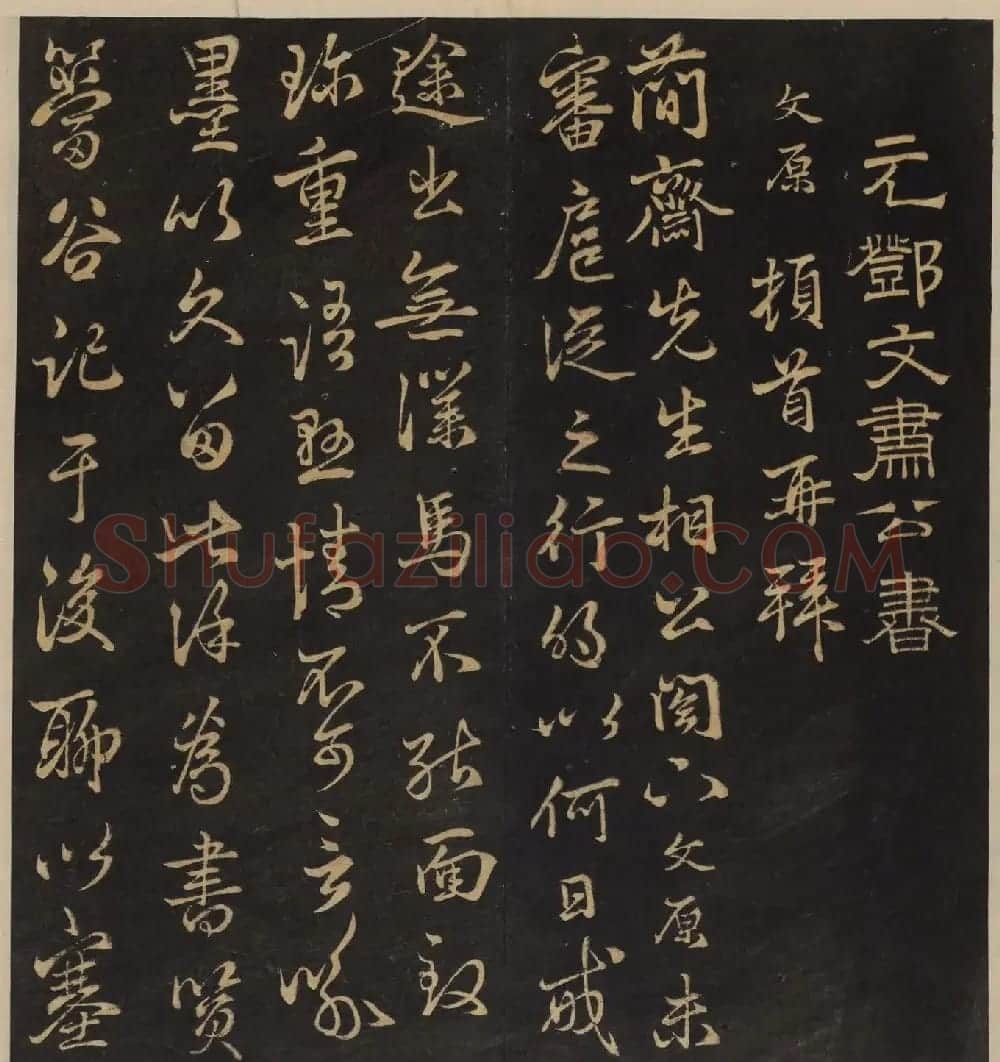 元鄧文肅公書
文原 頓首再拜
簡齋先生相公閣下文原未
審扈從之行的以何日戒
途出無僕馬不能面致
珍重語甚情不可言喻
墨以久留此除為書贊
簹谷記于後聊以塞
Shufaziliao.COM